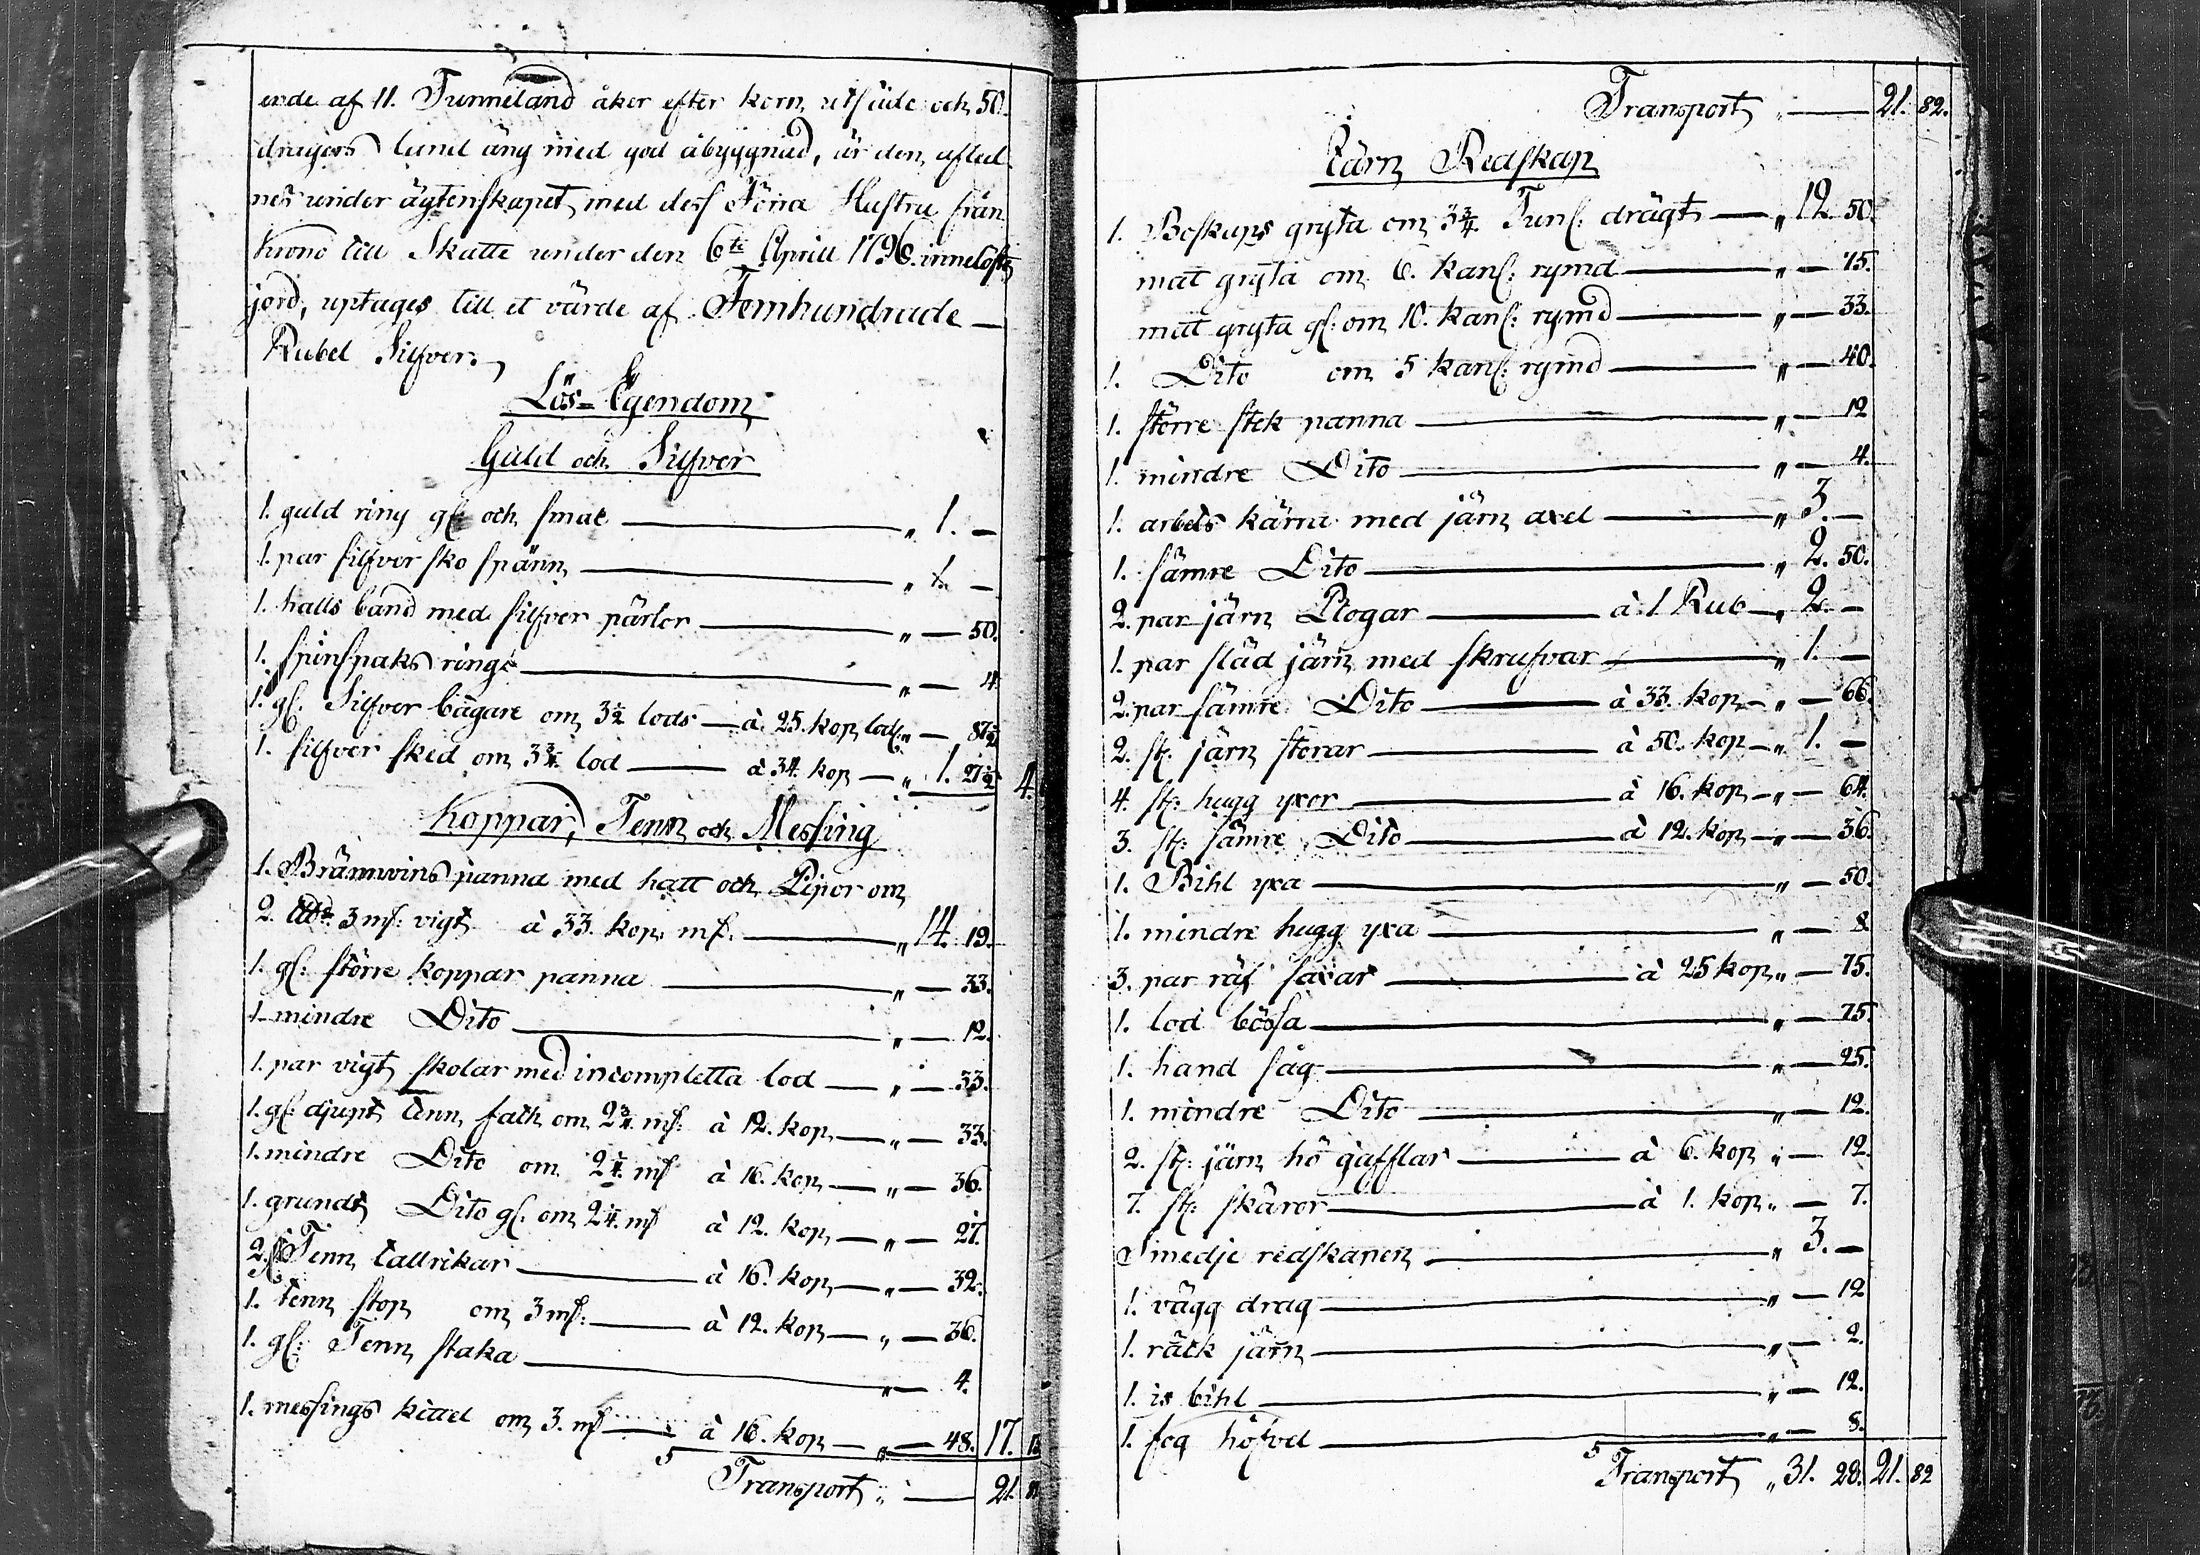 ende af 11. Tunneland åker efter korn utsäde och 50.
drayors lund äng med god åbyygnad, är den afled
nes under ägtenskapet med dess Förra Hustru från
Krono till Skatte under den 6te Aprill 1796. innelöste
jord, uptages till et värde af Femhundrade
Rubel Silfver.
Lös-Egendom
Guld och Silfver
1. guld ring gl. och smal — „ 1. —
1. par silfver sko spänn — „ 1. —
1. halls band med silfver pärlor — „ — 50.
1. spinspaks ringe — „ — 4.
1. gl. Silfver bägare om 3½ lods — à 25. kop lod: „ — 87½
1. silfver sked om 3¾ lod — à 34. kop — „ 1. 27½ 4.
Koppar, Tenn och Messing
1. Brännvins panna med hatt och Pipor om
2. 3 mk: vigt à 33. kop. mk. — „ 14. 19.
1. gl: större koppar panna — „ — 33.
1. mindre Dito — „ — 12.
1. par vigt skolar med incompletta lod — „ — 33.
1. gl: djupt tenn fath om 2¾. mk: à 12. kop — „ — 33.
1. mindre Dito om 2¼. mk à 16. kop — „ — 36.
1. grundt Dito gl: om 2¼. mk à 12. kop — „ — 27.
2. st Tenn tallrikar — à 16. kop — „ — 32.
1. tenn stop om 3 mk: — à 12. kop — „ — 36.
1. gl: Tenn staka — „ — 4.
1. messings kittel om 3. mk — à 16. kop — „ — 48. 17.
Transport „ — 21.
Transport „ — 21. 82.
Järn Redskap
1. Boskaps gryta om 3¾ Tuns: drägt — „ 12. 50.
mat gryta om 6. kans: rymd — „ — 75.
mat gryta gl: om 10. kans: rymd — „ — 33.
1. Dito om 5 kans: rymd — „ — 40.
1. större stek panna — „ — 12
1. mindre Dito — „ — 4.
1. arbets kärra med järn axel — „ 3. —
1. sämre Dito — „ 2. 50.
2. par järn Plogar — à 1 Rub — „ 2. —
1. par släd järn med skrufvar — „ 1. —
2. par sämre Dito — à 33. kop — „ — 66.
2. st: järn störar — à 50. kop — „ 1. —
4. st: hugg yxor — à 16. kop — „ — 64.
3. st: sämre Dito — à 12. kop — „ — 36.
1. Bihl yxa — „ — 50.
1. mindre hugg yxa — „ — 8
3. par räf saxar — à 25 kop „ — 75.
1. lod bössa — „ — 75.
1. hand såg — „ — 25.
1. mindre Dito — „ — 12.
2. st: järn hö gafflar — à 6. kop „ — 12.
7. st: skäror — à 1. kop „ — 7.
Smedje redskapen — „ 3. —
1. vägg drag — „ — 12
1. räck järn — „ — 2.
1. is bihl — „ — 12.
1. fog höfvel — „ — 8.
Transport „ 31. 28. 21. 82